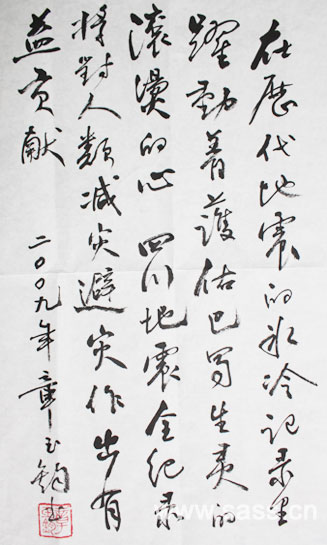 在歷代地震的冰冷记录里
躍動着護佑巴蜀生灵的
滚燙的心 四川地震全纪录
将對人類减灾避灾作出有
益贡献
二〇〇九年章玉钧书
www.cass.cn